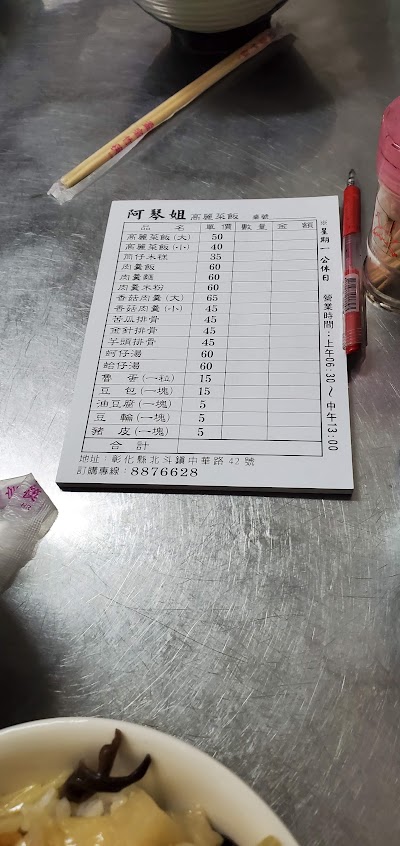 阿琴姐 高麗菜飯 桌號
品名 單價 數量 金額
高麗菜飯(大) 50
高麗菜飯(小) 40
筒仔木糕 35
肉羹飯 60
肉羹麵 60
肉羹米粉 60
香菇肉羹(大) 65
香菇肉羹(小) 45
苦瓜排骨 45
金針排骨 45
芋頭排骨 45
蚵仔湯 60
蛤仔湯 60
魯蛋(一粒) 15
豆包(一塊) 15
油豆腐(一塊) 5
豆輪(一塊) 5
豬皮(一塊) 5
合計
地址：彰化縣北斗鎮中華路42號
訂購專線：8876628
※星期一公休日 營業時間：上午06:30～中午13:00